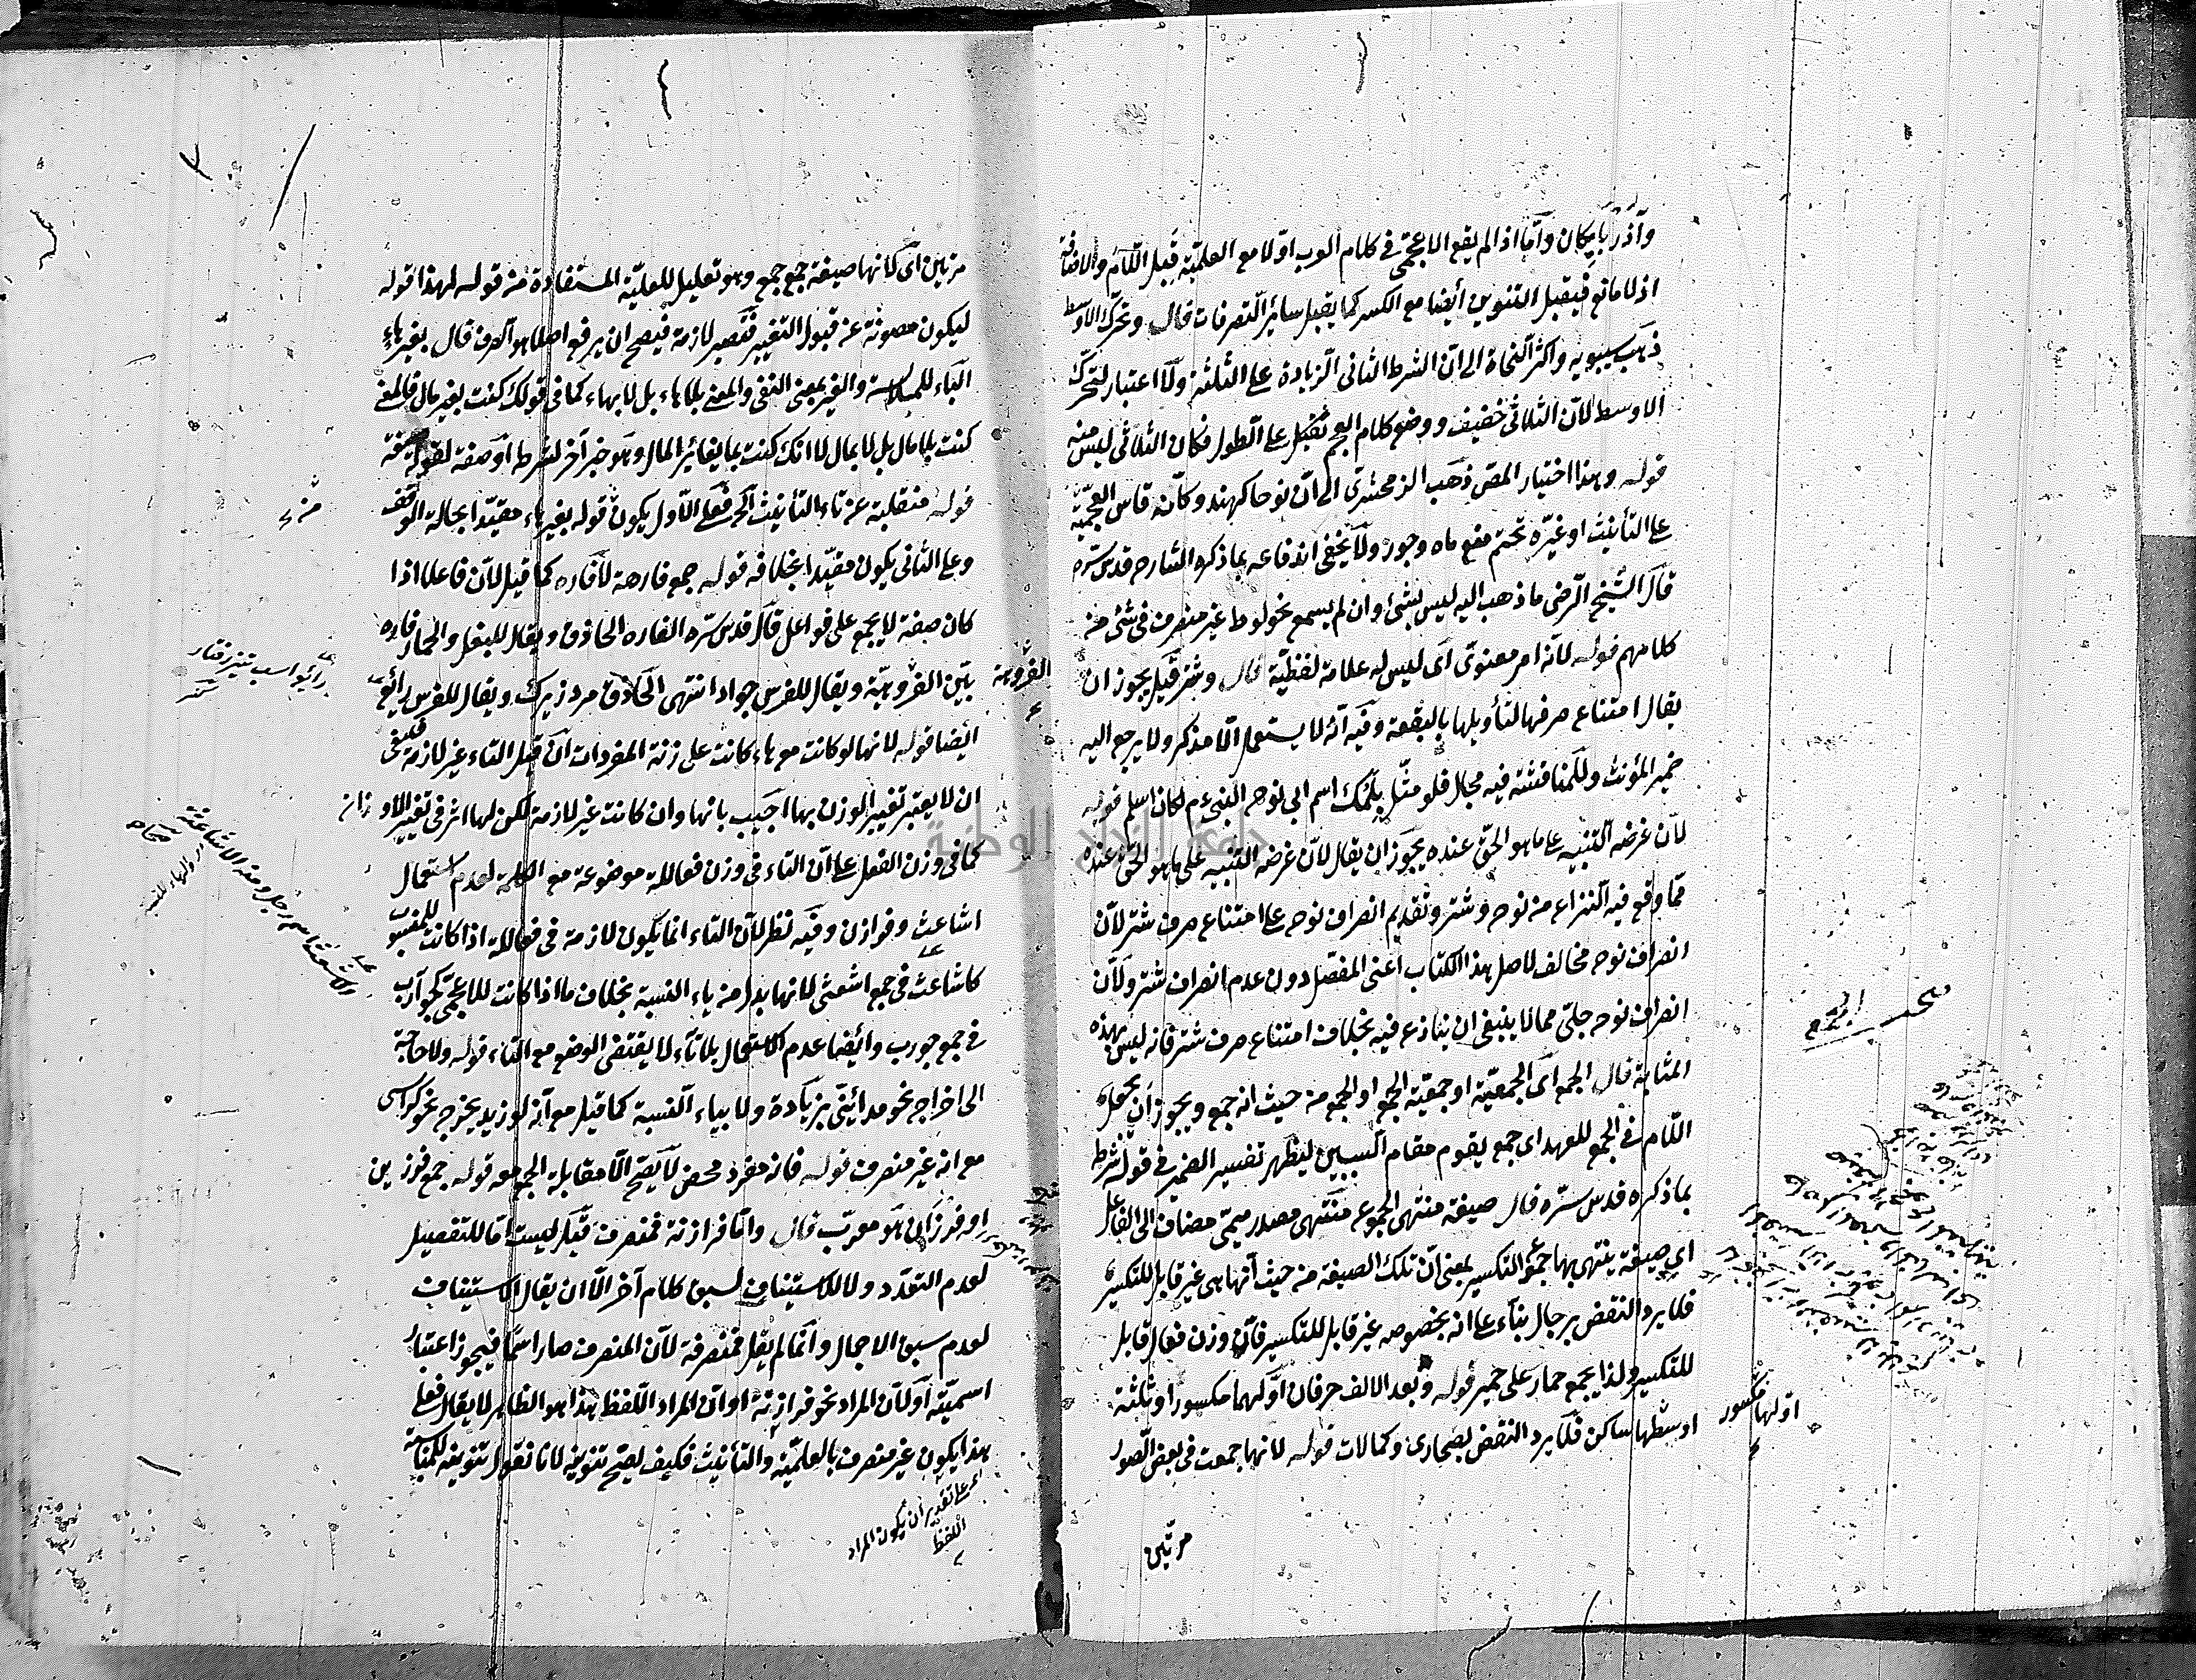 وآذربايكان وأما اذا لم يقع الاعجمى فى كلام العرب اولا مع العلمية قبل اللام والاضافة
اذ لا مانع فيقبل التنوين أيضا مع الكسر كما يقبل سائر التصرفات قال وتحرك الاوسط
ذهب سيبويه واكثر النحاة الى ان الشرط الثانى الزيادة على الثلثة ولا اعتبار لتحرك
الاوسط لان الثلاثى خفيف ووضع كلام العجم ثقيل على الطول فكان الثلاثى ليس منه
قوله وهذا اختيار المص ذهب الزمخشرى الى ان نوحا كهند وكأنه قاس العجمية
على التأنيث او غيره تحتم منع ماه وجور ولا يخفى اندفاعه بما ذكره الشارح قدس سره
قال الشيخ الرضى ما ذهب اليه ليس بشئ وان لم يسمع نحو لوط غير منصرف فى شئ من
كلامهم قوله لانه امر معنوى اى ليس له علامة لفظية قال وشتر قيل يجوز ان
يقال امتناع صرفها لتأويلها بالبقعة وفيه انه لا يستعمل الا مذكر ولا يرجع اليه
ضمير المؤنث وللمناقشة فيه مجال فلو مثل بلمك اسم ابى نوح النبى ءم لكان اسلم قوله
لان غرضه التنبيه على ما هو الحق عنده يجوز ان يقال لان غرضه التنبيه على ما هو الحق عنده
مما وقع فيه النزاع من نوح وشتر وتقديم انصراف نوح على امتناع صرف شتر لان
انصراف نوح مخالف لاصل هذا الكتاب اعنى المفصل دون عدم انصراف شتر ولان
انصراف نوح جلى مما لا ينبغى ان ينازع فيه بخلاف امتناع صرف شتر فانه ليس بهذه
المثابة قال الجمع اى الجمعية او جمعية الجمع او الجمع من حيث انه جمع ويجوز ان يجعل
اللام فى الجمع للعهد اى جمع يقوم مقام السببين ليظهر تفسير الضمير فى قوله شرطه
بما ذكره قدس سره قال صيغة منتهى الجموع منتهى مصدر ميمى مضاف الى الفاعل
اى صيغة ينتهى بها جمع التكسير بمعنى ان تلك الصيغة من حيث انها هى غير قابل للتكسير
فلا يرد النقض برجال بناء على انه بخصوصه غير قابل للتكسير فان وزن فعال قابل
للتكسير ولذا يجمع حمار على حمير قوله وبعد الالف حرفان اولهما مكسور او ثلثة
اوسطها ساكن فلا يرد النقض بصحارى وكمالات قوله لانها جمعت فى بعض الصور
اولها مكسور
مرتين
مرتين اى كانها صيغة جمع جمع وهو تعليل للعلية المستفادة من قوله لهذا قوله
ليكون مصونة عن قبول التغيير فتصير لازمة فيصح ان يرفع اصلا هو الصرف قال بغير هاء
الباء للملابسة والغير بمعنى النفى والمعنى بلا هاء بل لا بهاء كما فى قولك كنت بغير مال فالمعنى
كنت بلا مال بل لا بمال لا انك كنت بما يغائر المال وهو خبر آخر لشرطه او صفة لقوله صيغة
قوله منقلبة عن تاء التأنيث آلخ فعلى الاول يكون قوله بغير هاء مقيدا بحالة الوقف
وعلى الثانى يكون مقيدا بخلافه قوله جمع فارهة لا فاره كما قيل لان فاعلا اذا
كان صفة لا يجمع على فواعل قال قدس سره الفاره الحاذق ويقال للبغل والحمار فاره
بين الفروهية ويقال للفرس جواد انتهى الحاذق مرد زيرك ويقال للفرس رائع
ايضا قوله لانها لو كانت مع هاء كانت على زنة المفردات الخ قيل التاء غير لازمة فينبغى
ان لا يعتبر تغيير الوزن بها اجيب بانها وان كانت غير لازمة لكن لها اثر فى تغيير الاوزان
كما فى وزن الفعل على ان التاء فى وزن فعاللة موضوعة مع الكلمة لعدم استعمال
اشاعث وفرازن وفيه نظر لان التاء انما يكون لازمة فى فعاللة اذا كانت للمنسوب
كاشاعثة فى جمع اشعثى لانها بدل من ياء النسبة بخلاف ما اذا كانت للاعجمى كجوارب
فى جمع جورب وايضا عدم الاستعمال بلا تاء لا يقتضى الوضع مع التاء قوله ولا حاجة
الى اخراج نحو مدائنى بزيادة ولا بياء النسبة كما قيل مع انه لو زيد يخرج نحو كراسى
مع انه غير منصرف قوله فانه مفرد محض لا يصح الا مقابلة الجمع معه قوله جمع فرزين
او فرزان هو معرب قال واما فرازنة فمنصرف قيل ليست اما للتفصيل
لعدم التعدد ولا للاستيناف لسبق كلام آخر الا ان يقال الاستيناف
لعدم سبق الاجمال وانما لم يقل فمنصرفة لان المنصرف صار اسما فيجوز اعتبار
اسميته او لان المراد نحو فرازنة او ان المراد اللفظ هذا هو الظاهر لا يقال فعلى
هذا يكون غير منصرف بالعلمية والتأنيث فكيف يصح تنوينه لانا نقول تنوينه للحكاية
الفروهة
رائع اسب تيز رفتار
اى على تقدير ان يكون المراد
اللفظ